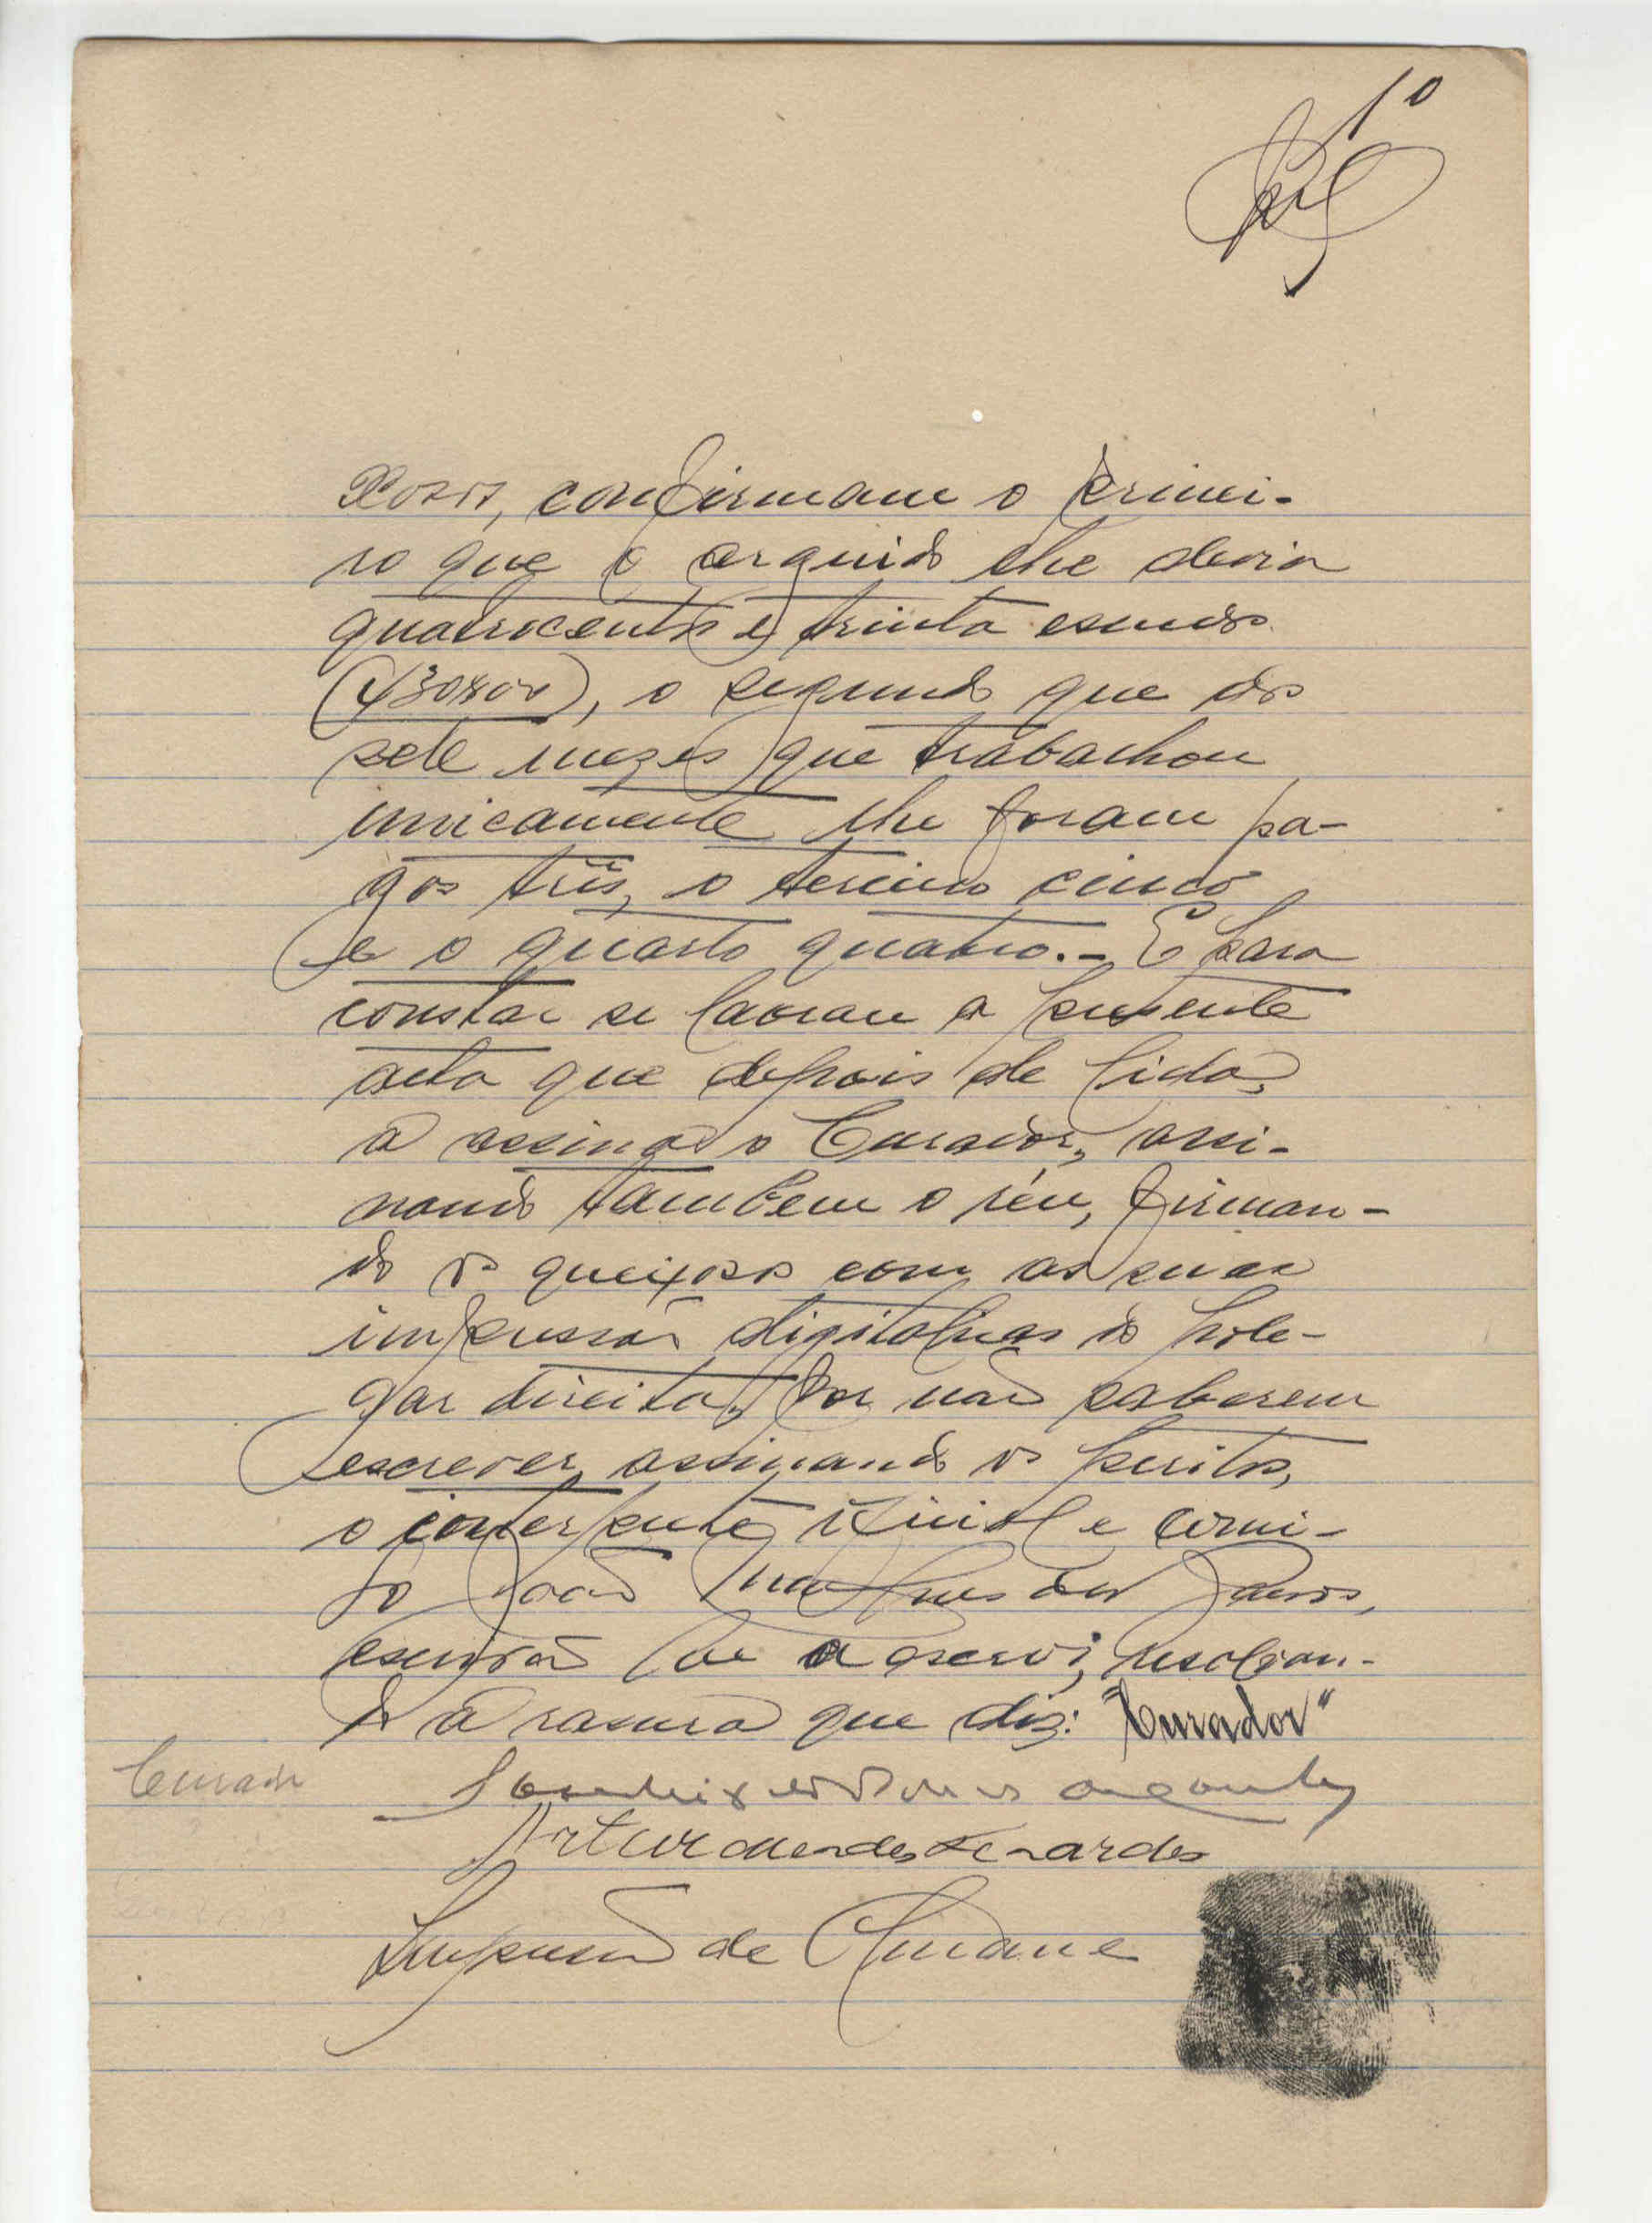 10
xosos, confirmam o primei-
ro que o arguido lhe devia
quatrocentos e trinta escudos
(430$00), o segundo que dos
sete mezes que trabalhou
unicamente lhe foram pa-
gos três, o terceiro cinco
e o quarto quatro.- E para
constar se lavrou a presente
acta que depois de lida,
a assina o Curador, assi-
nando tambem o réu, firman-
do os queixosos com as suas
impressões digitais do pole-
gar direito, por não saberem
escrever, assinando os peritos,
o interprete oficial e comi-
go João dos
escrivão que a escrevi, ressalvan-
do a rasura que diz: "Curador"
Curador
Artur Mendes Bernardes
Impressão de